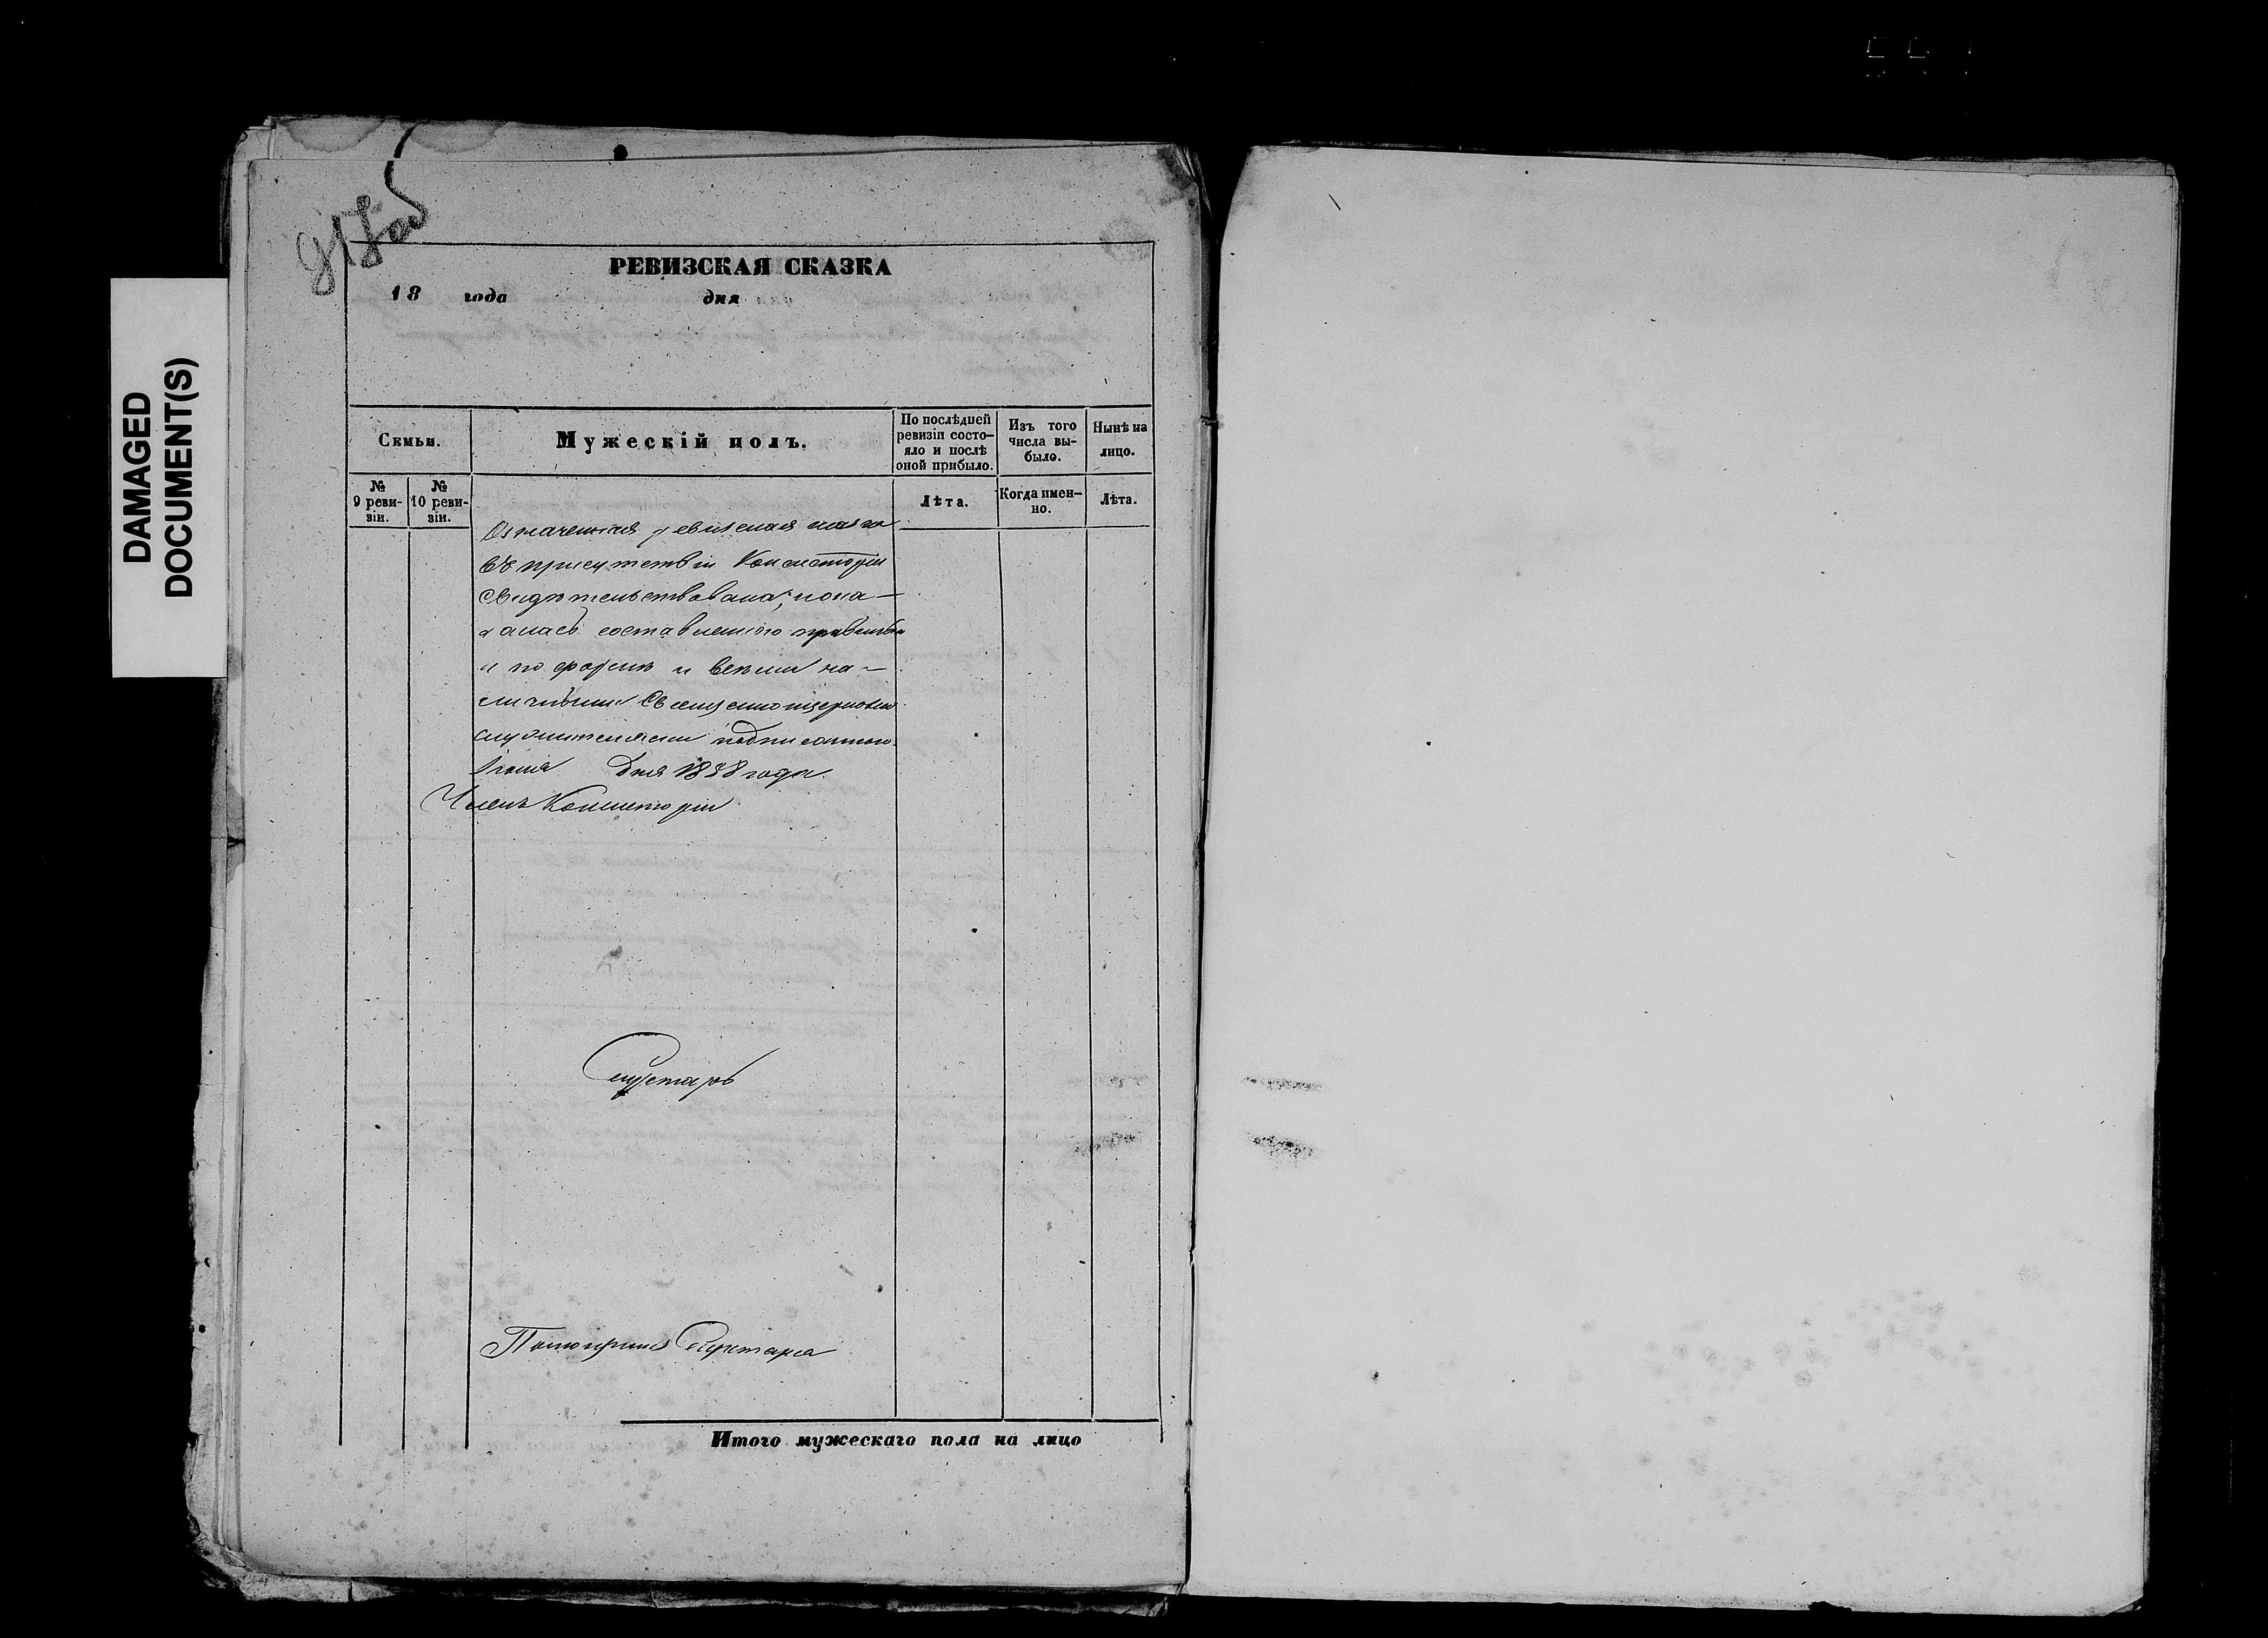 DAMAGED
DOCUMENT(S)
РЕВИЗСКАЯ СКАЗКА
18 года дня
Семьи.
Мужескій полъ.
По послѣдней
ревизіи состо-
яло и послѣ
оной прибыло.
Изъ того
числа вы-
было.
Нынѣ на
лицо.
№
9 реви-
зіи.
№
10 реви-
зіи.
Лѣта.
Когда имен-
но.
Лѣта.
Означенная ревизская сказка
въ присутствіи Консисторіи
свидѣтельствована; пока-
залась составленною правильно
и по формѣ и всѣми на-
личными Священноцерковно
служителями подписанною.
дня 1858 года.
Членъ Консисторіи
Секретарь
Секретаря
Итого мужескаго пола на лицо